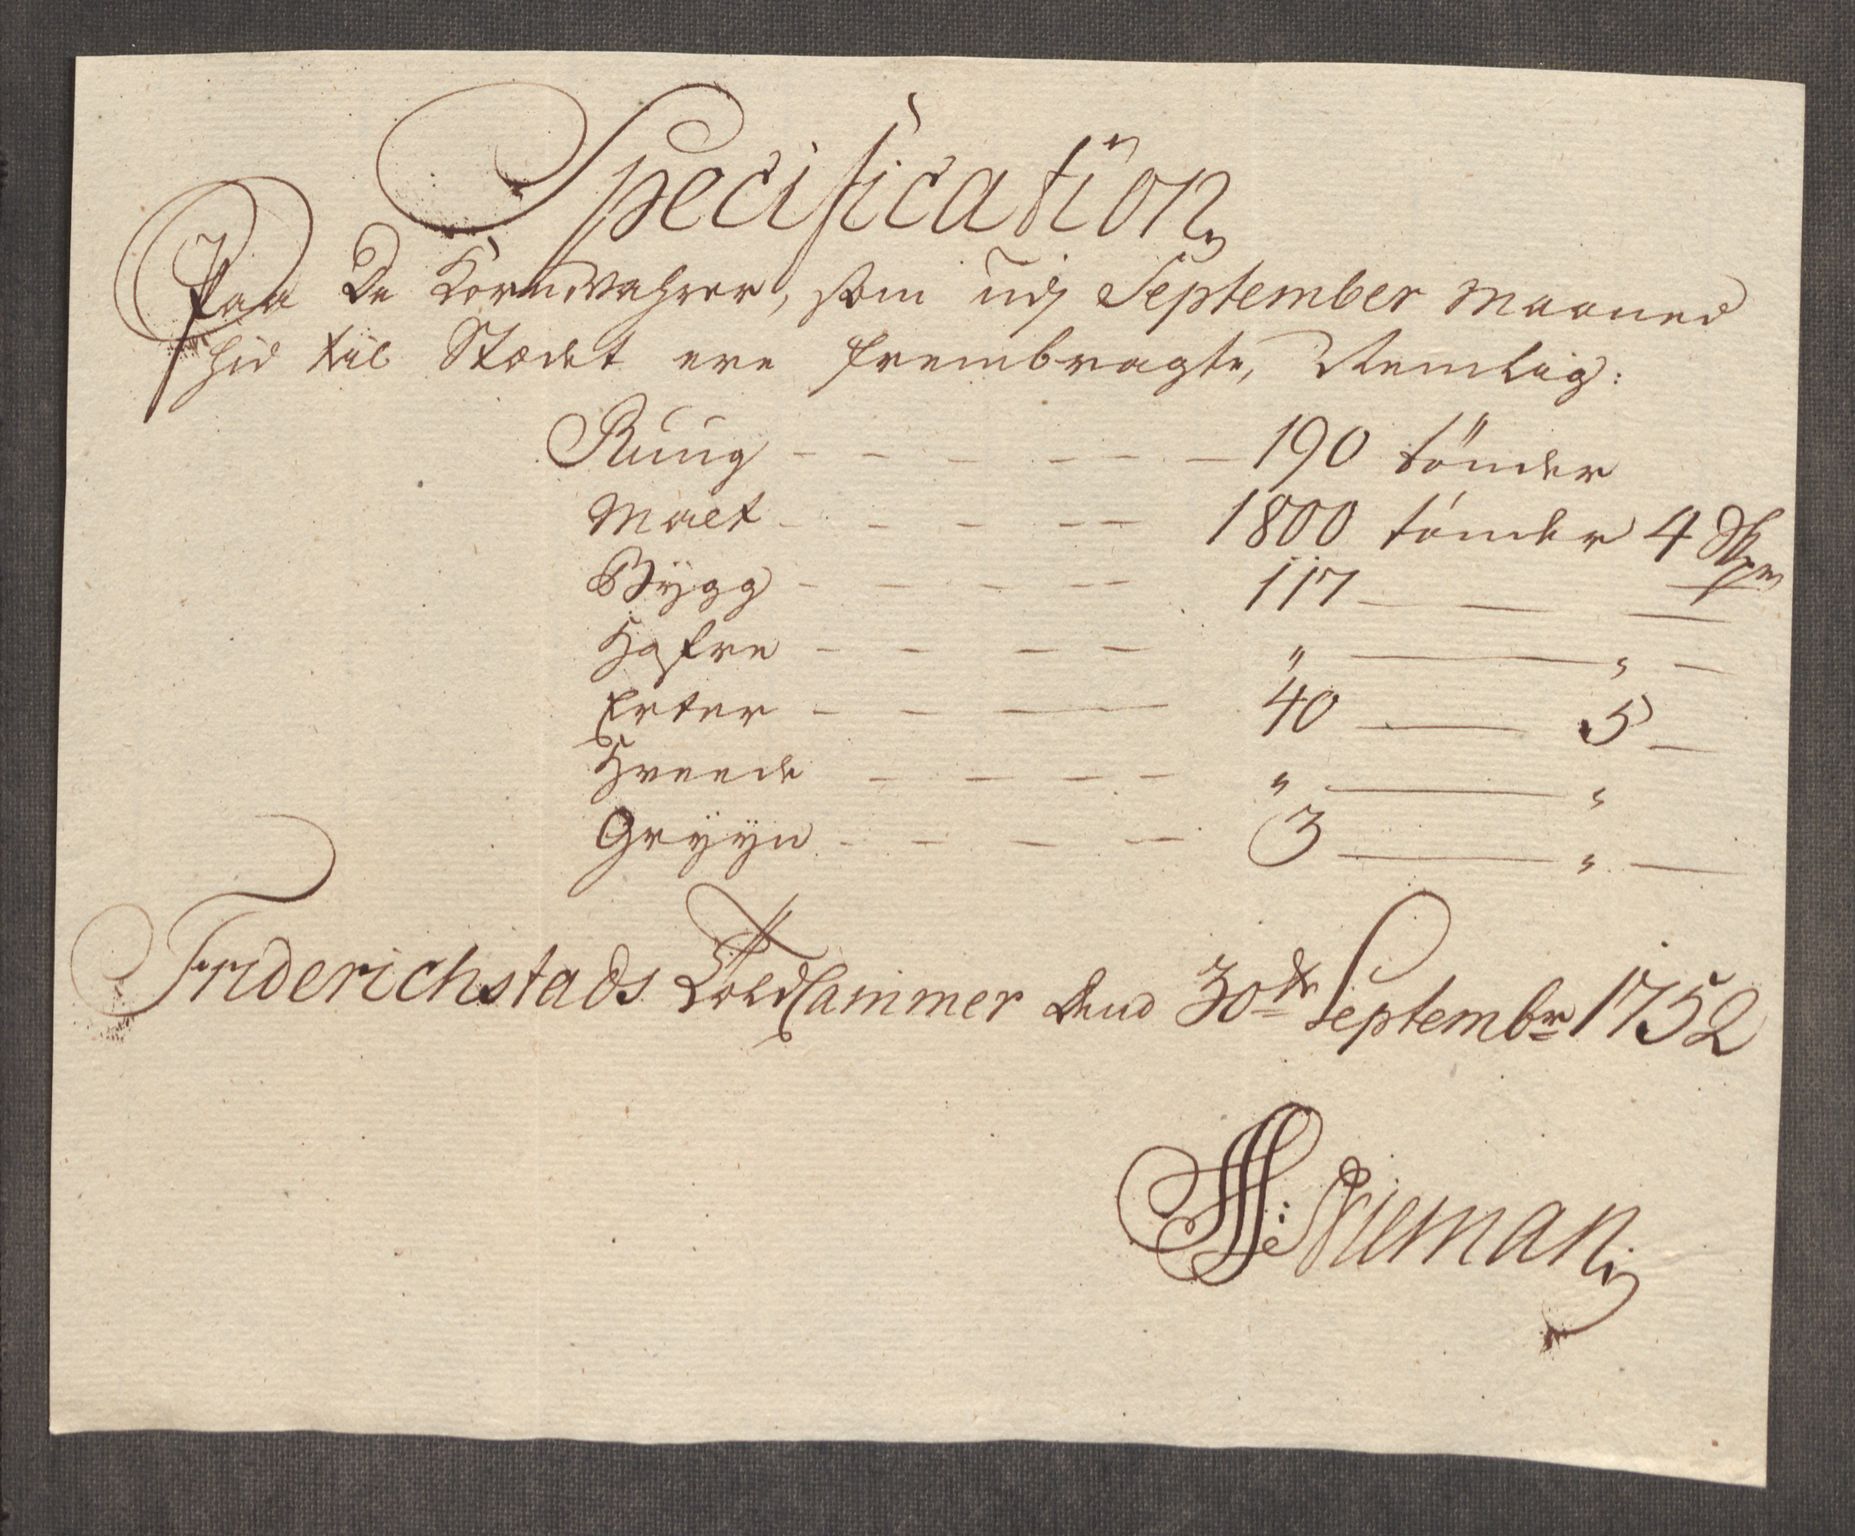 Specification
Paa De Kornwahrer, som udj September Maaned
hid till Stædet ere frembragte, Nemlig:
Ruug - - - - - - 190 tönder
Malt - - - - - 1800 tönder 4 Skpr
Bÿgg - - - - - 117 — — —
Hafre - - - - " — " —
Erter - - — — 40 — 5 —
Hveede - - - - - " — "
Grÿÿn - - - - 3 — " —
Friderichstads Told Cammer dend 30te Septembr 1752
Nieman